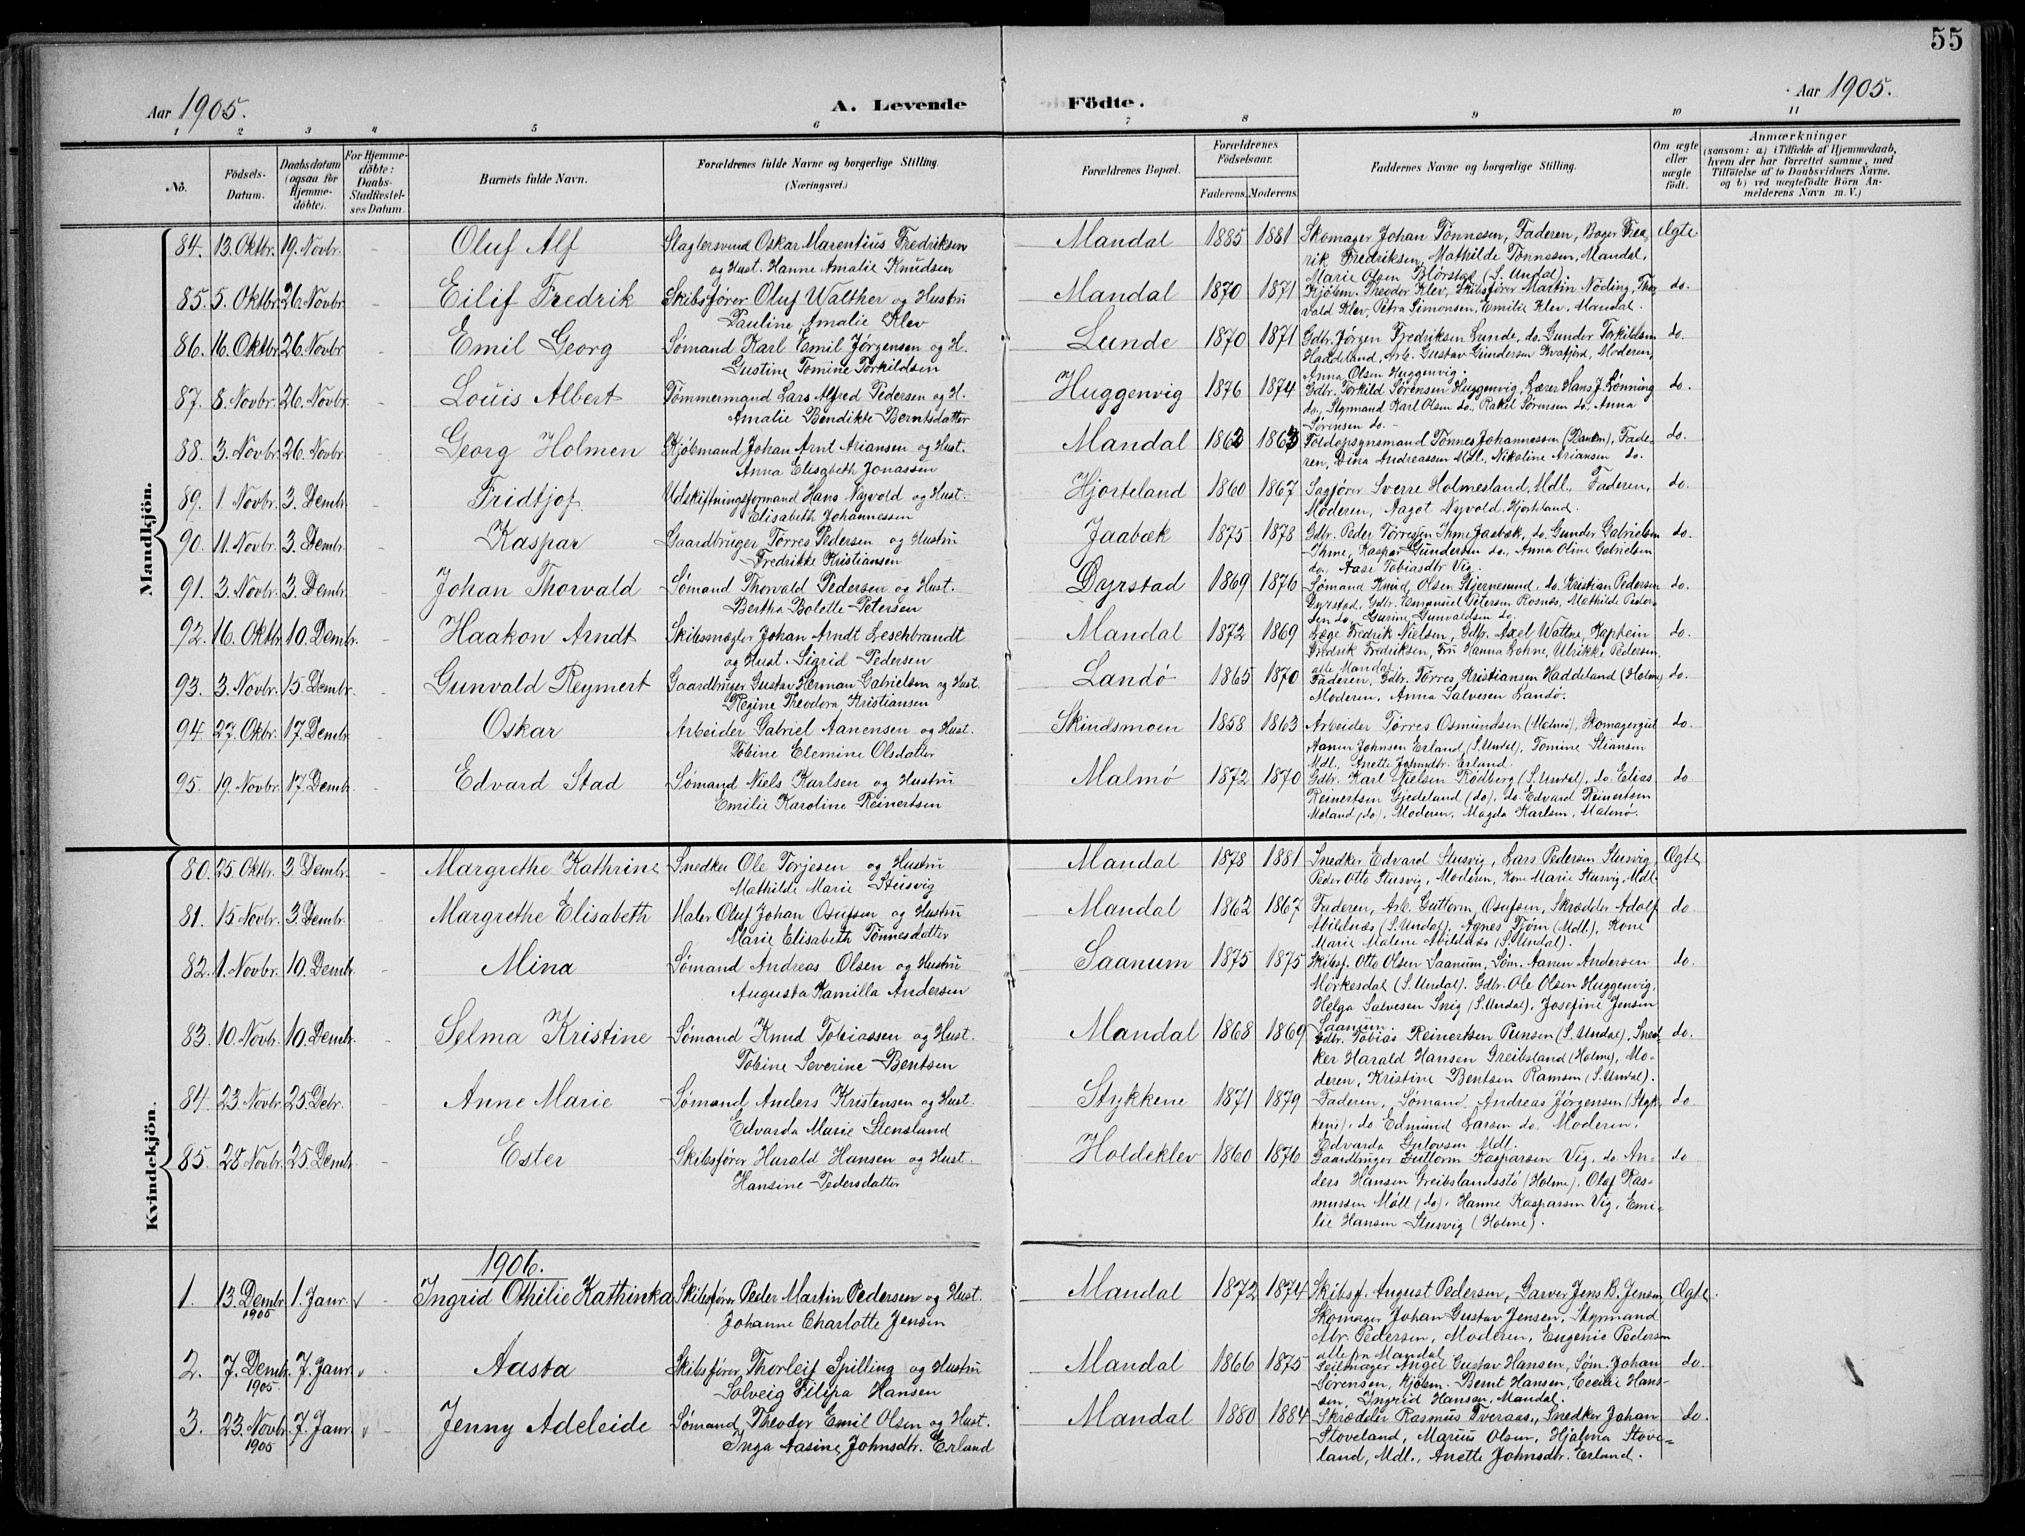 55
Aar 1905. A. Levende Födte. Aar 1905.
1 2 3 4 5 6 7 8 9 10 11
No. Födsels-Datum. Daabsdatum (ogsaa for Hjemmedöbte). For Hjemmedöbte: Daabs-Stadfæstelses Datum. Barnets fulde Navn. Forældrenes fulde Navne og borgerlige Stilling. (Næringsvei.) Forældrenes Bopæl. Forældrenes Födselsaar. Faderens. Moderens. Faddernes Navne og borgerlige Stilling. Om ægte eller uægte födt. Anmærkninger (saasom: a) i Tilfælde af Hjemmedaab, hvem der har forrettet samme, med Tilföielse af to Daabsvidners Navne, og b) ved uægtefödte Börn Anmelderens Navn m. V.)
Mandkjön.
84. 13. Oktbr. 19. Novbr. - Oluf Alf Slagtersvend Oskar Marentius Fredriksen Mandal 1885 1881 Skomager Johan Tønnesen, Faderen, Bager Fred- Ægte
og Hust. Hanne Amalie Knudsen rik Fredriksen, Mathilde Tønnesen, Mandal,
Marie Olsen (S. Undal).
85. 5. Oktbr. 26. Novbr. - Eilif Fredrik Skibsfører Oluf Walther og Hustru Mandal 1870 1871 Kjøbm. Theodor Klev, Skibsfører Martin Nöding, Thor- do.
Pauline Amalie Klev vald Klev, Petra Simonsen, Emilie Klev, Mandal.
86. 16. Oktbr. 26. Novbr. - Emil Georg Sømand Karl Emil Jørgensen og H. Lunde 1870 1871 Gdbr. Jørgen Fredriksen Lunde, do. Gunder Torkildsen do.
Gustine Tomine Torkildsen Haddeland, Arb. Gustav Gundersen Kvafjord, Moderen,
Anna Olsen Huggenvig.
87. 8. Novbr. 26. Novbr. - Louis Albert Tømmermand Lars Alfred Pedersen og H. Huggenvig 1876 1874 Gdbr. Torkild Sørensen Huggenvig, Lærer Hans J. Lønning do.
Amalie Bendikte Berntsdatter do., Styrmand Karl Olsen do., Rakel Sørensen do., Anna
Sørensen do.
88. 3. Novbr. 26. Novbr. - Georg Holmen Kjøbmand Johan Arnt Ariansen og Hust. Mandal 1862 1863 Toldopsynsmand Tønnes Johannessen, Fade- do.
Anna Elisabeth Jonassen ren, Dina Andreassen Mdl., Nikoline Ariansen do.
89. 1. Novbr. 3. Dembr. - Fridtjof Udskiftningsformand Hans Nyvold og Hust. Hjorteland 1860 1867 Sagfører Sverre Holmesland, Mdl., Faderen, do.
Elisabeth Johannessen Moderen, Aagot Nyvold, Hjorteland.
90. 11. Novbr. 3. Dembr. - Kaspar Gaardbruger Tørres Pedersen og Hustru Jaabæk 1875 1878 Gdbr. Peder Tørresen Ihme Jaabæk, do. Gunder Gabrielsen do.
Fredrikke Kristiansen Ihme, Kaspar Gundersen do., Anna Oline Gabrielsen
do., Aase Tobiasdtr. Vig.
91. 3. Novbr. 3. Dembr. - Johan Thorvald Sømand Thorvald Pedersen og Hust. Dyrstad 1869 1876 Sømand Knud Olsen Stjernesund, do. Kristian Pedersen do.
Bertha Bolette Petersen Dyrstad, Gdbr. Emanuel Petersen Rosnæs, Mathilde Peder-
sen do, Gurine Gunvaldsen do.
92. 16. Oktbr. 10. Dembr. - Haakon Arndt Skibsmægler Johan Arndt Leschbrandt Mandal 1872 1869 Læge Fredrik Nielsen, Gdbr. Axel Wattne, Kaptein do.
og Hust. Sigrid Pedersen Fredrik Fredriksen, Fru Hanna Lohne, Ulrikke Pedersen,
alle Mandal.
93. 3. Novbr. 15. Dembr. - Gunvald Reymert Gaardbruger Gustav Herman Gabrielsen og Hust. Landø 1865 1870 Faderen, Gdbr. Tørres Kristiansen Haddeland (Holme) do.
Regine Theodora Kristiansen Moderen, Anna Salvesen Landø.
94. 27. Oktbr. 17. Dembr. - Oskar Arbeider Gabriel Aanensen og Hust. Skindsmoen 1858 1863 Arbeider Tørres Osmundsen (Malmø), Skomagergut do.
Tobine Elemine Olsdatter Aanen Johnsen Erland (S. Undal), Tomine Stiansen
Mdl., Anette Johnsdtr. Erland.
95. 19. Novbr. 17. Dembr. - Edvard Stad Sømand Niels Karlsen og Hustru Malmø 1872 1870 Gdbr. Karl Nielsen Rødberg (S. Undal), do. Elias do
Emilie Karoline Reinertsen Reinertsen Gjedeland (do), do. Edvard Reinertsen
Moland (do), Moderen, Magda Karlsen, Malmø.
Kvindekjön.
80. 25. Oktbr. 3. Dembr. - Margrethe Kathrine Snedker Ole Torjesen og Hustru Mandal 1878 1881 Snedker Edvard Stusvig, Lars Pedersen Stusvig, Ægte
Mathilde Marie Stusvig Peder Otto Stusvig, Moderen, Kone Marie Stusvig, Mdl.
81. 15. Novbr. 3. Dembr. - Margrethe Elisabeth Maler Oluf Johan Osufsen og Hustru Mandal 1862 1867 Faderen, Arb. Guttorm Osufsen, Skrædder Adolf do
Marie Elisabeth Tønnesdatter Abildnæs (S. Undal), Agnes Tjøm (Mdl), Kone
Marie Malene Abildnæs (S. Undal).
82. 1. Novbr. 10. Dembr. - Mina Sømand Andreas Olsen og Hustru Saanum 1875 1875 Skibsf. Otto Olsen Saanum, Søm. Aanen Andersen do.
Augusta Kamilla Andersen Mørkesdal (S. Undal). Gdbr. Ole Olsen Huggenvig,
Helga Salvesen Snig (S. Undal), Josefine Jensen
Saanum
83. 10. Novbr. 10. Dembr. - Selma Kristine Sømand Knud Tobiassen og Hust. Mandal 1868 1869 Gdbr. Tobias Reinertsen (S. Undal), Sned- do.
Tobine Severine Bentsen ker Harald Hansen Greibsland (Holme), Mo-
deren, Kristine Bentsen Ramsøn (S. Undal).
84. 23. Novbr. 25. Debr. - Anne Marie Sømand Anders Kristensen og Hust. Stykkene 1871 1879 Faderen, Sømand Andreas Jørgensen (Styk- do
Edvarda Marie Stensland kene), do Edmund Larsen do, Moderen,
Edvarda Gulovsen Mdl.
85. 28. Novbr. 25. Dembr. - Ester Skibsfører Harald Hansen og Hust. Holdeklev 1860 1876 Gaardbruger Guttorm Kasparsen Vig, do An- do
Hansine Pedersdatter ders Hansen Greibslandsstø (Holme), Olaf Ras-
mussen Møll (do), Hanne Kasparsen Vig, Emi-
lie Hansen Stusvig (Holme).
1906.
1. 13. Dembr. 1905 1. Janr. v - Ingrid Othilie Kathinka Skibsfører Peder Martin Pedersen og Hust. Mandal 1872 1874 Skibsf. August Pedersen, Garver Jens B. Jensen, Ægte.
Johanne Charlotte Jensen Skomager Johan Gustav Jensen, Styrmand
Abr. Pedersen, Moderen, Eugenie Pedersen
alle fra Mandal
2. 7. Dembr. 1905. 7. Janr. v Aasta Skibsfører Thorleif Spilling og Hustru Mandal 1866 1875 Seilmager Angel Gustav Hansen, Søm. Johan do.
Solveig Filipa Hansen Sørensen, Kjøbm. Bernt Hansen, Cecilie Han-
sen, Ingrid Hansen, Mandal.
3. 23. Novbr. 1905 7. Janr. v - Jenny Adeleide Sømand Theodor Emil Olsen og Hust. Mandal 1880 1884 Skrædder Rasmus Tveraas, Snedker Johan do.
Inga Aasine Johnsdtr. Erland Stoveland, Marius Olsen, Hjalma Stove-
land, Mdl., Anette Johnsdtr. Erland.